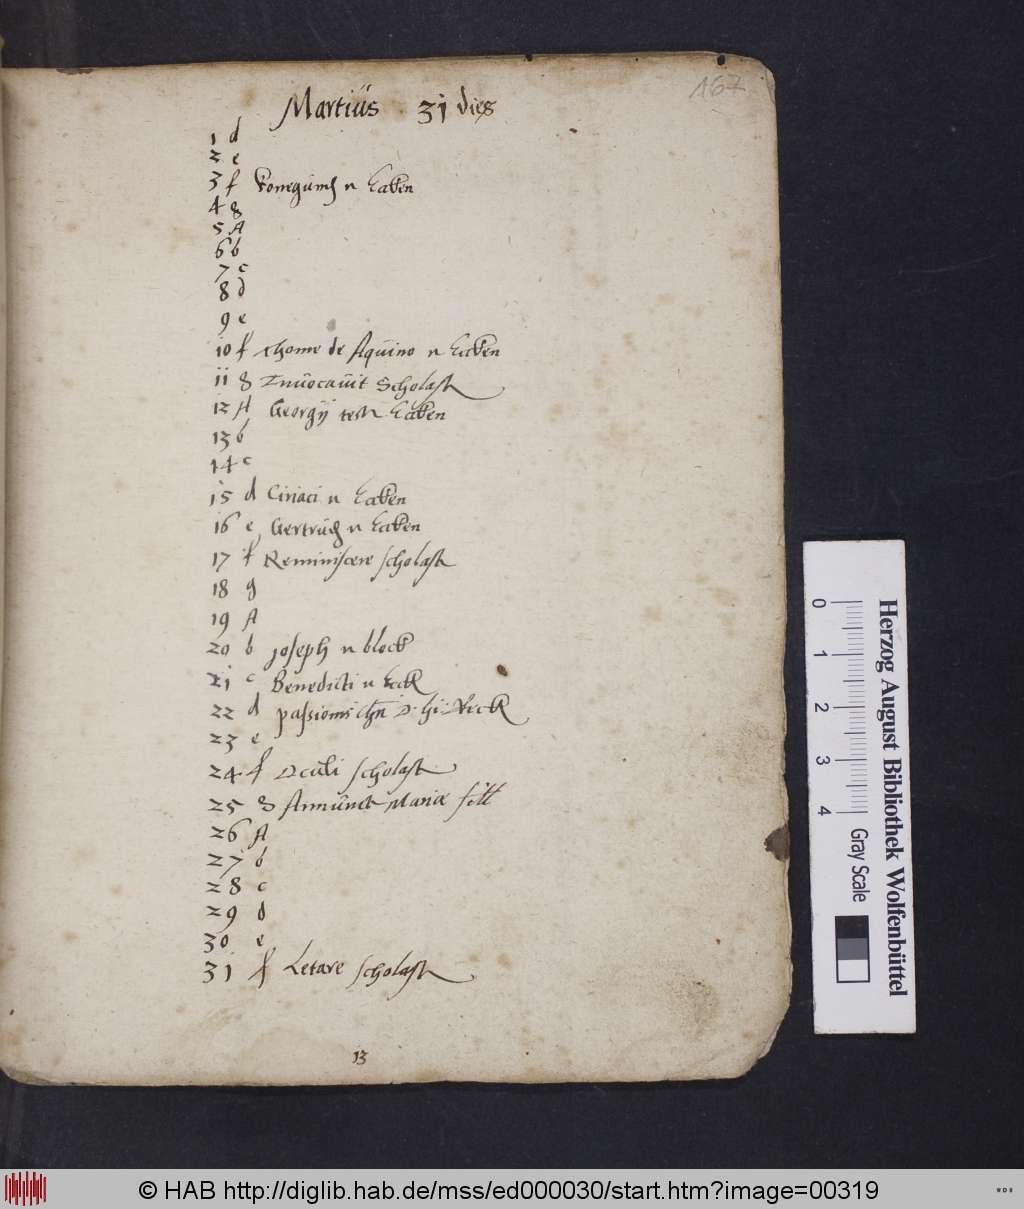 167
Martiüs 31 dies
1 d
2 e
3 f Konegündis n
4 g
5 A
6 b
7 c
8 d
9 e
10 f Thome de Aqüino n
11 g Inüocaüit Scholast
12 A Georgÿ
13 b
14 c
15 d Ciriaci n
16 e Gertrüd n
17 f Reminiscere scholast
18 g
19 A
20 b joseph n block
21 c Benedicti n
22 d passionis
23 e
24 f Ocüli scholast
25 g Annünct Mariæ
26 A
27 b
28 c
29 d
30 e
31 f Letare scholast
13
Herzog August Bibliothek Wolfenbüttel
0 1 2 3 4 Gray Scale
© HAB http://diglib.hab.de/mss/ed000030/start.htm?image=00319